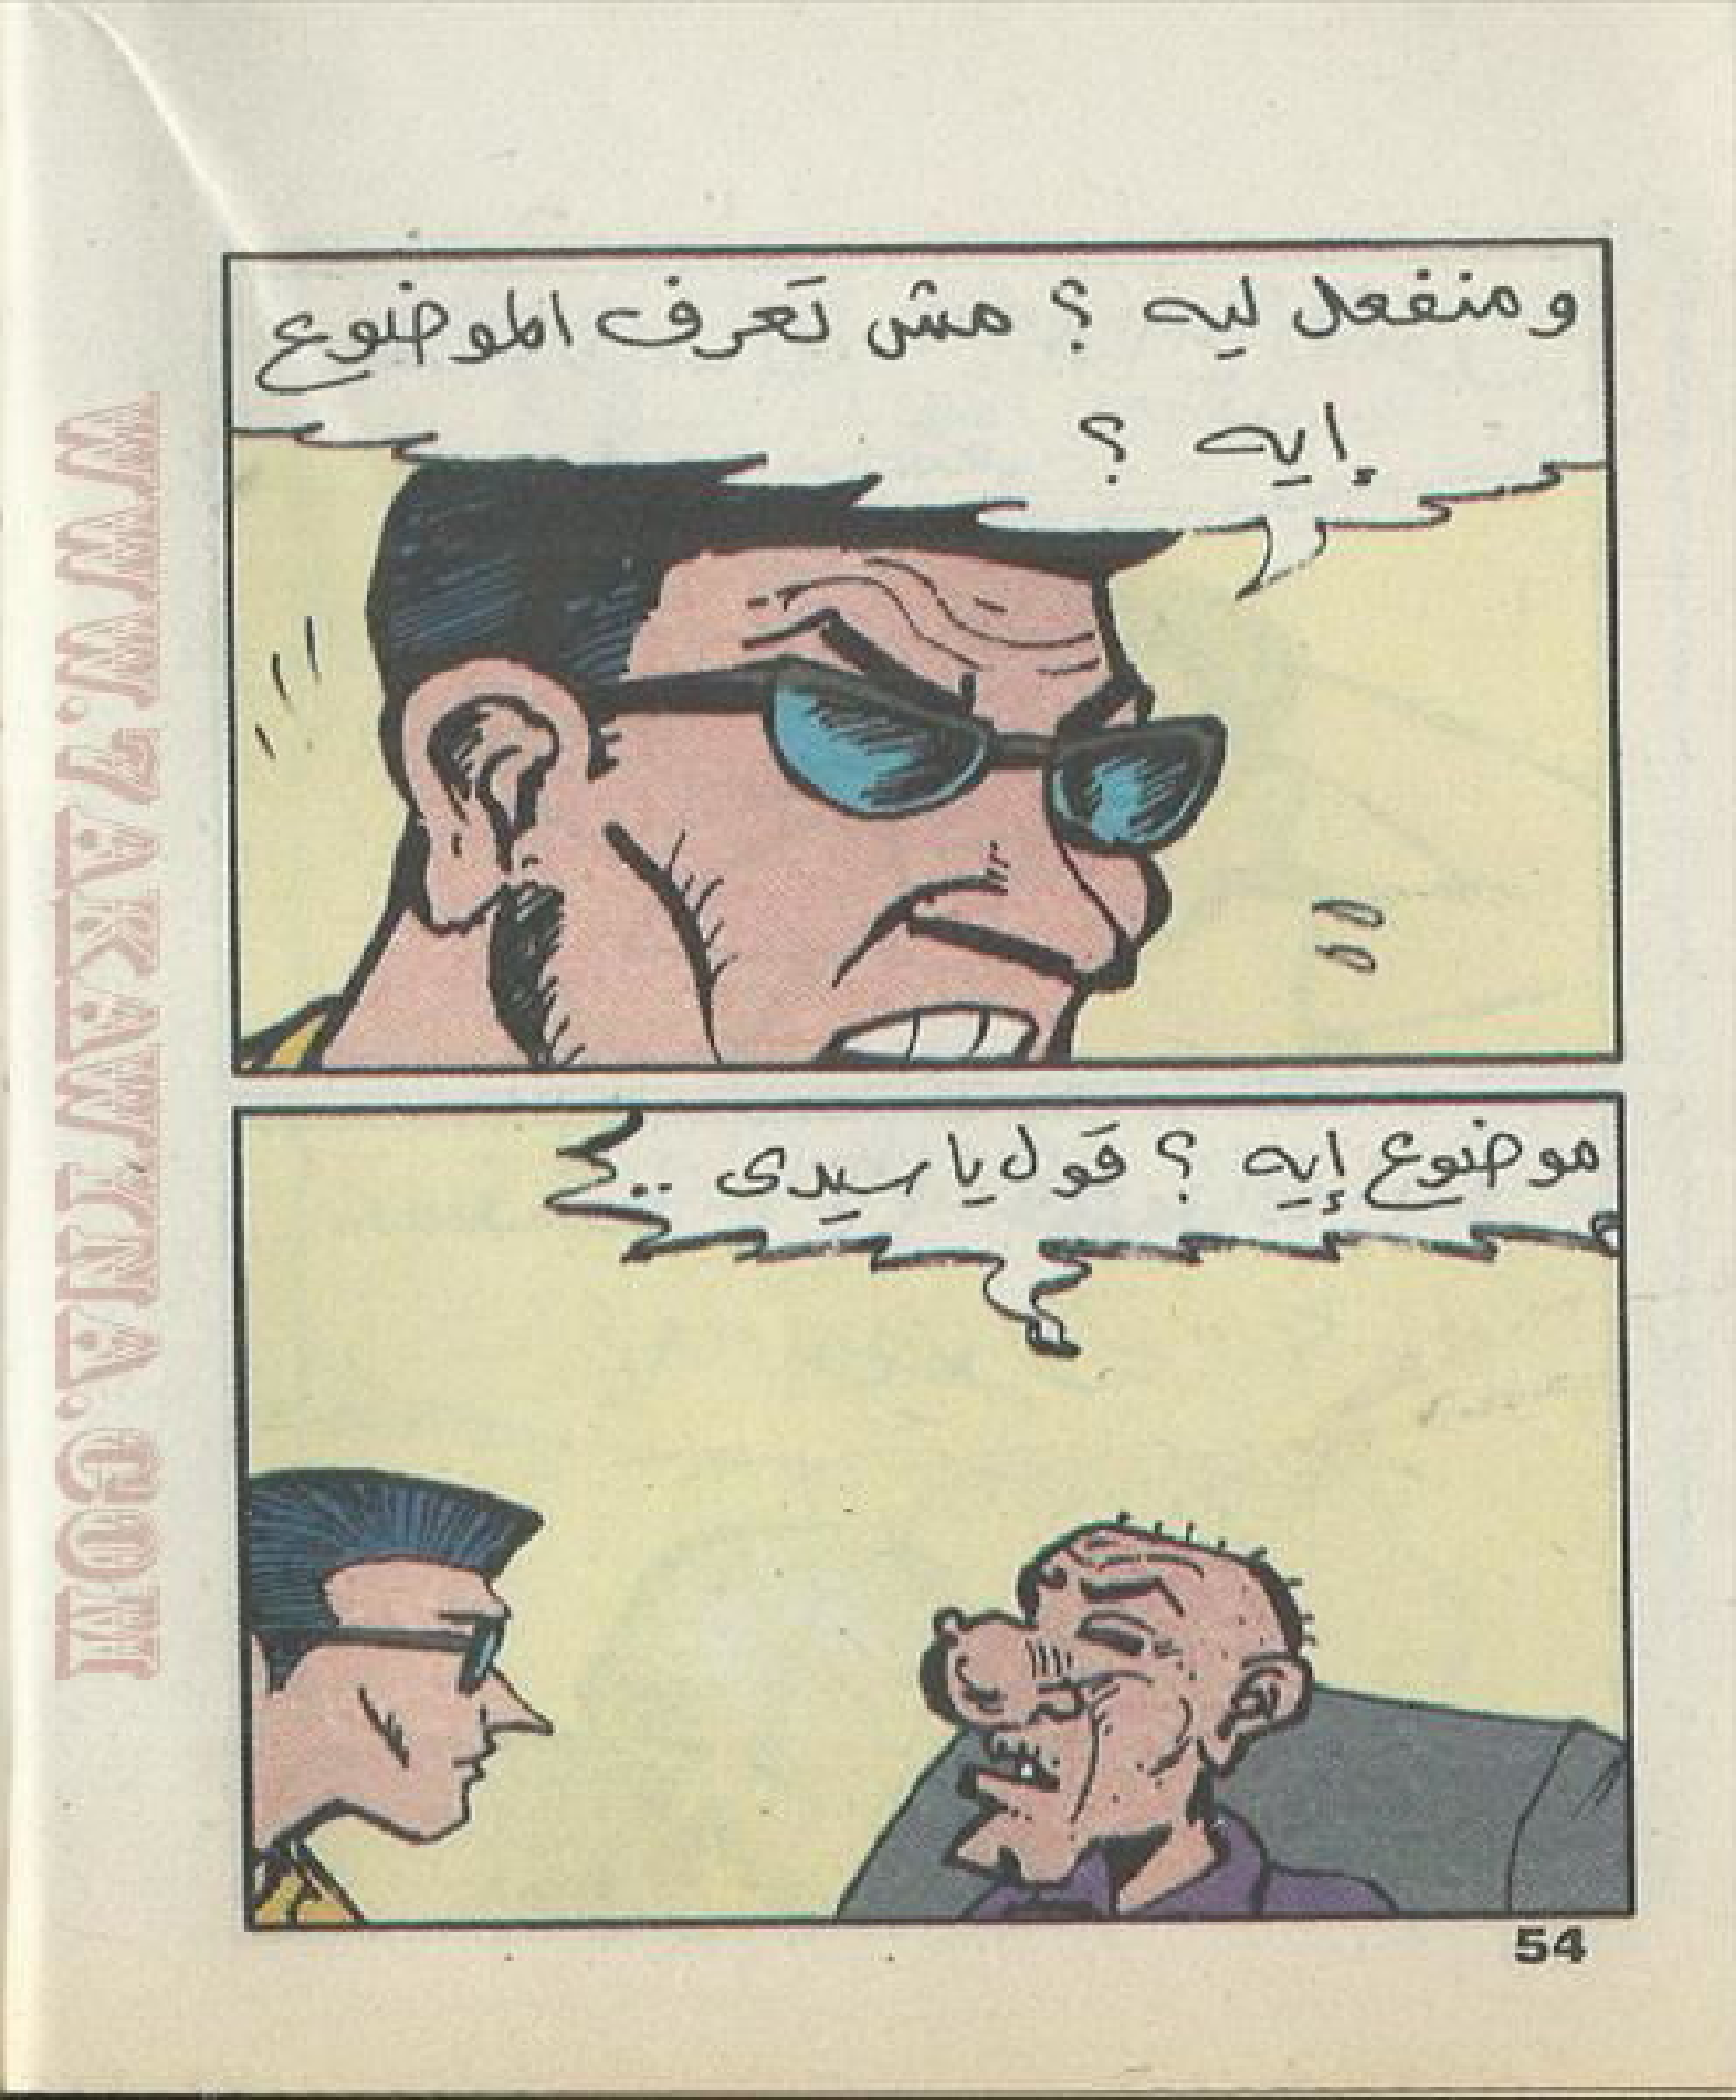 ومنفعل ليه ؟ مش تَعرف الموضوع
إيه ؟
موضوع إيه ؟ قَول يا سيدى ..
54
WWW.7AKAWENA.COM